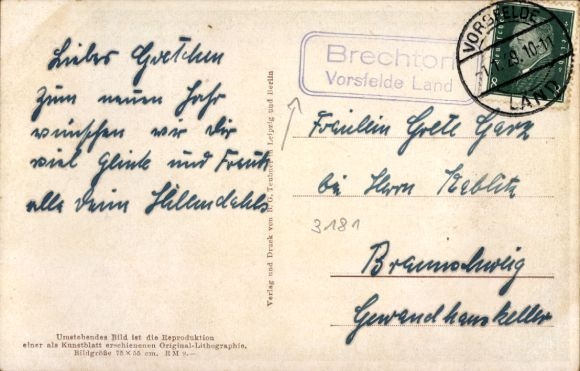 Liebes Gretchen
Zum neuen Jahr
wünschen wir Dir
viel Glück und Freude
alle Deine
Verlag und Druck von B. G. Teubner in Leipzig und Berlin
Umstehendes Bild ist die Reproduktion
einer als Kunstblatt erschienenen Original-Lithographie.
Bildgröße 75×55 cm. RM 9.—
Brechtorf
Vorsfelde Land
VORSFELDE
29.10-11
LAND
Fräulein Grete Garz
bei Herrn Keblitz
3181
Braunschweig
Gewandhauskeller